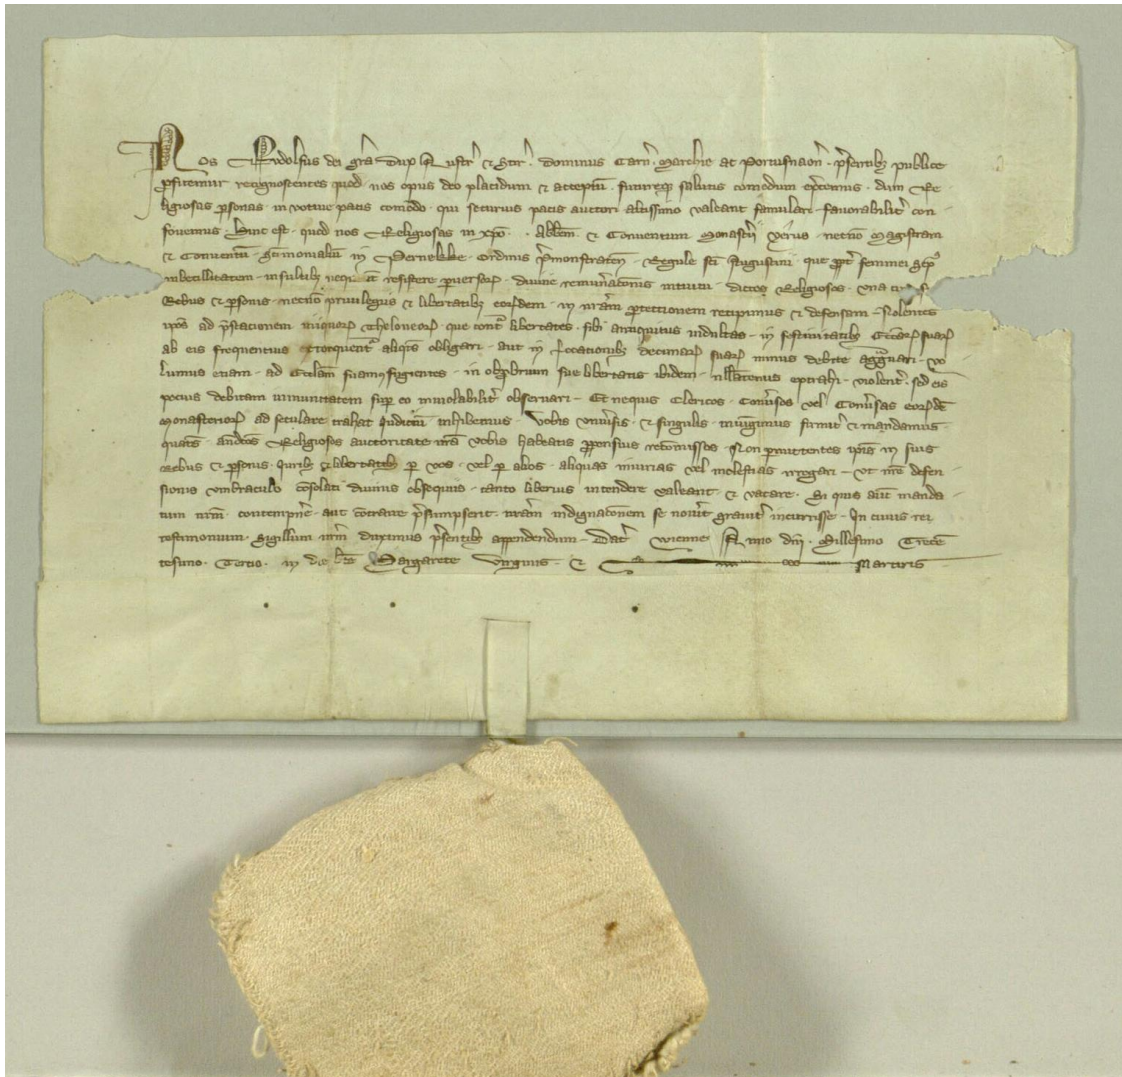 Nos Rudolfus dei gra Dux Austr̄ & Stir̄ . dominus Carn̄ . Marchie ac Portusnaon̄ . p̄sentibꝫ publice
ꝓfitemur recognoscentes quod . nos opus deo placidum & acceptū . futureqꝫ salutis comodum exercemus . dum Re
ligiosas ꝑsonas . in votive pacis comodo . qui securius pacis auctori altissimo valeant famulari . favorabilit̄ con
fovemus . Hinc est . quod nos Religiosas in xp̄o . . Abb̄em . & Conventum Monast̄ii Gerus . necnō magistram
& Conventū . Sc̄imonialiū in Pernekke . Ordinis P̄monstraten̄ . Regule sc̄i Augustini . que ꝓpt̄ feminei sexꝰ
inbecillitatem . insultibꝫ neq̄unt resistere ꝑversorꝝ . divine remun̄ationis intuitu . dictos Religiosos . una cum
Rebus & ꝑsonis . necnō privilegiis & libertatibꝫ eorūdem . in nr̄am ꝓtectionem recipimus & defensam . Nolentes
ip̄os ad p̄stationem iniquorꝝ theloneorꝝ . que cont̄ libertates . sibi antiquitus indultas . in festivitatibꝫ Ecc̄arꝝ suarꝝ
ab eis frequentius extorquent̄ aliq̄tis obligari . aut in locationibꝫ decimarꝝ suarꝝ minus debite agḡvari . vo
lumus etiam . ad Eccl̄iam suam 9fugientes . in obp̄brium sue libertatis ibidem . nll̄atenus extrahi . violent̄ . sed eis
pocius debitam immunitatem sup̄ eo inviolabilit̄ observari . Et nequis Clericos . Conv̄sos vel Conv̄sas eorūdē
Monasteriorꝝ ad seculare trahat Iudiciū inhibemus . Vobis univ̄sis . & singulis . iniūgimus firmit̄ & mandamus
quat̄s . dictos Religiosos auctoritate nr̄a vobis habeatis ꝓpensius recōmissos . Non ꝑmittentes ip̄is in suis
Rebus & ꝑsonis . Iuribꝫ & libertatibꝫ ꝑ vos . vel ꝑ alios . aliquas iniurias vel molestias irrogari . ut nr̄e defen
sionis umbraculo cōsolati divinis obsequiis . tanto liberius intendere valeant . & vacare . Si quis aūt manda
tum nr̄m . contempn̄e . aut cōtraire p̄sumpserit . nr̄am indignacōnem se nov̄it gravit̄ incurrisse . In cuius rei
testimonium . Sigillum nr̄m duximus p̄sentibꝫ appendendum . Dat̄ Wienne Anno dn̄i . Millesimo Trecē
tesimo . Tertio . in die b̄te Margarete Virginis . & Martiris